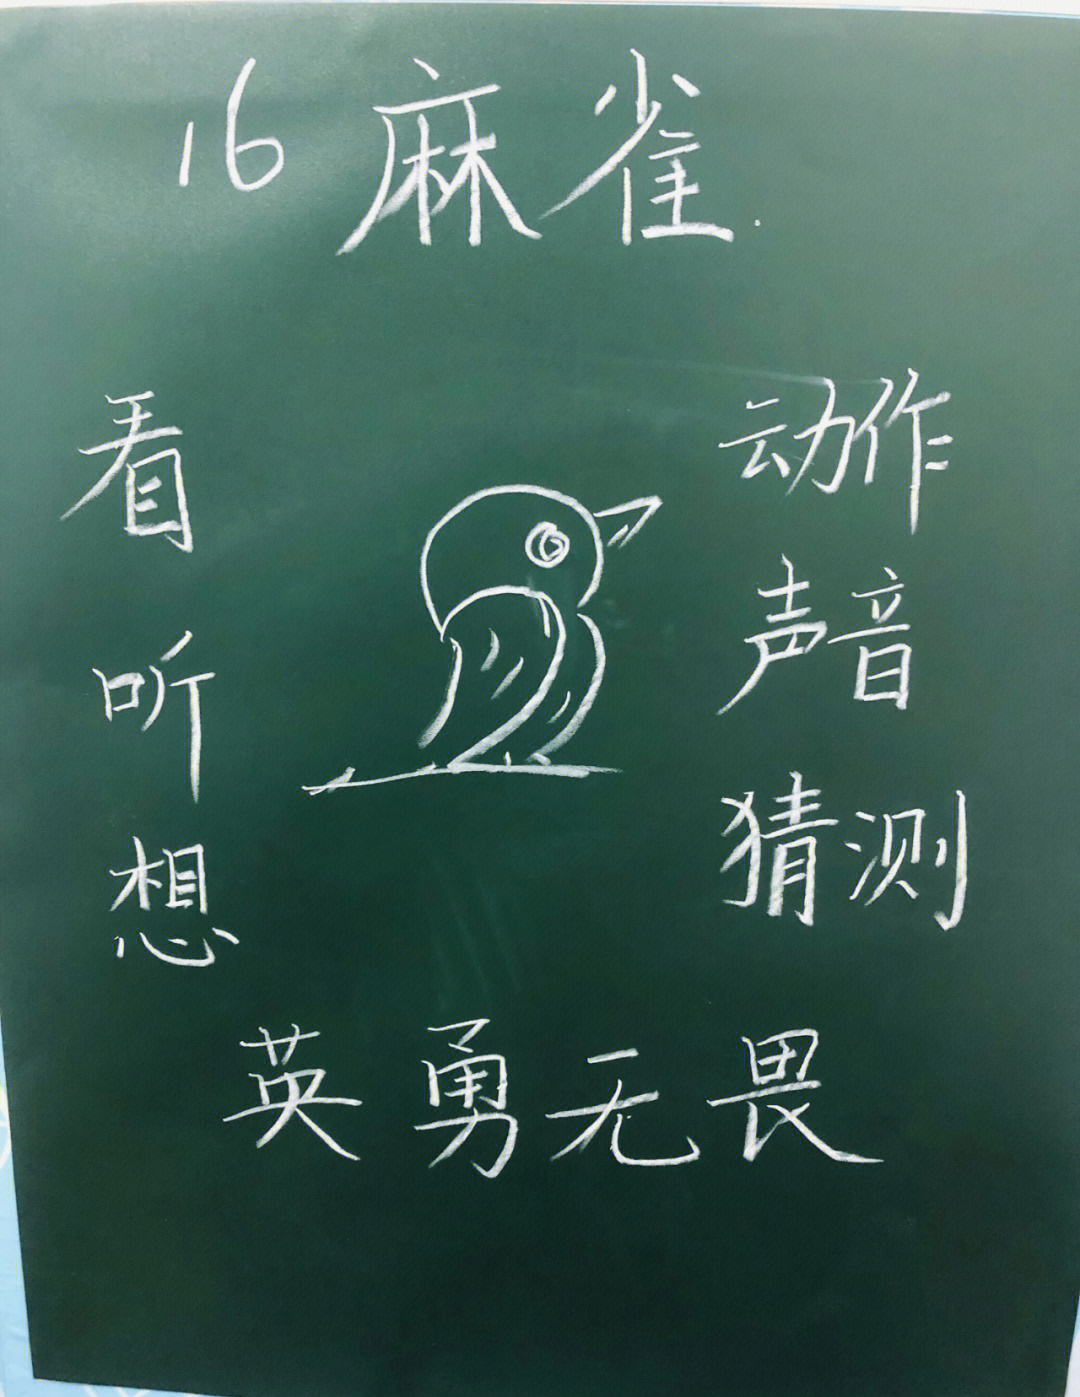 16 麻雀
看 动作
听 声音
想 猜测
英勇无畏